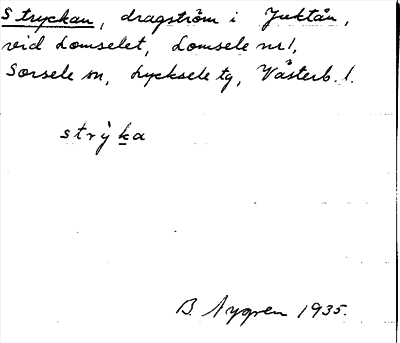 Stryckan, dragström i Juktån,
vid Lomselet, Lomsele nr 1,
Sorsele sn, Lycksele tg, Västerb. l.
strỳka
B. Nygren 1935.